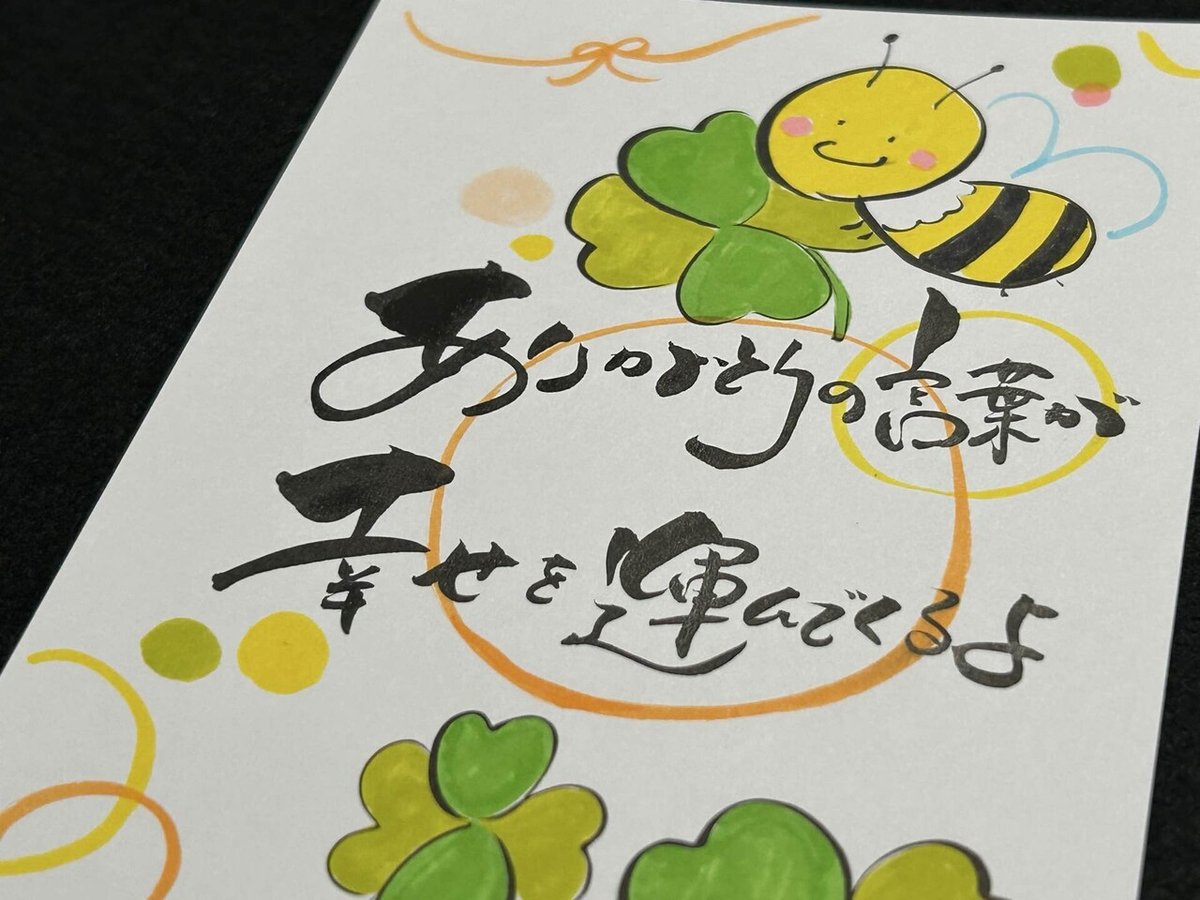 ありがとうの言葉が
幸せを運んでくるよ